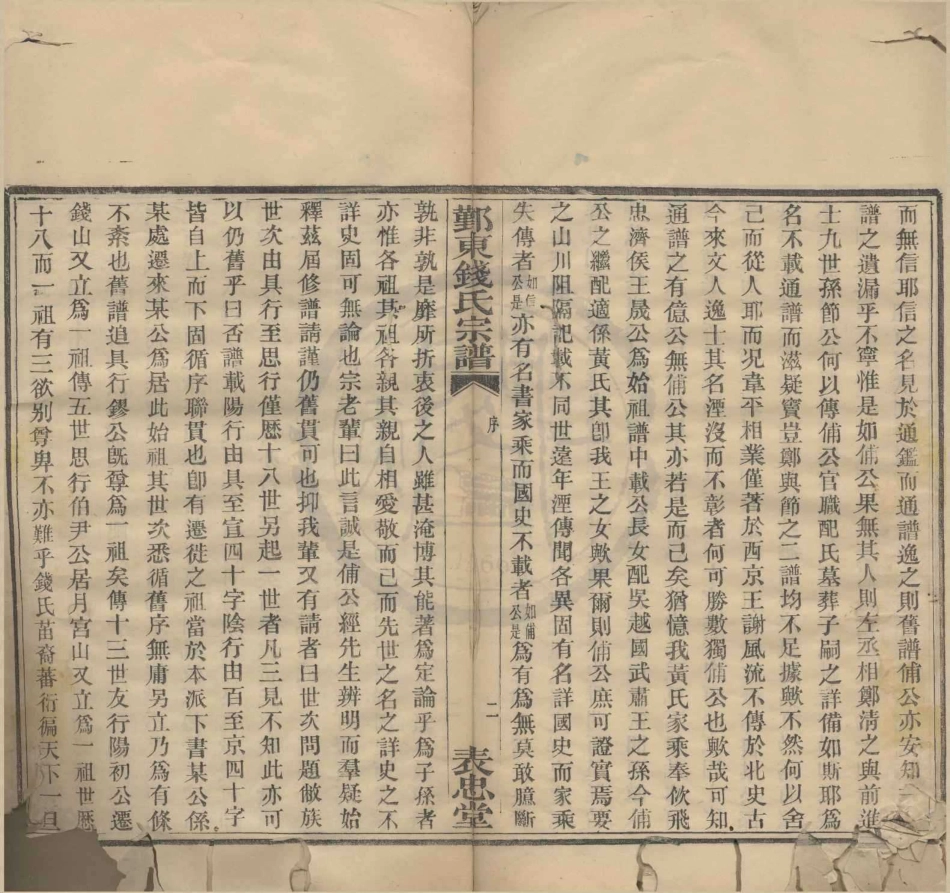 而無信耶信之名見於通鑑而通譜逸之則舊譜俌公亦安知
譜之遺漏乎不寧惟是如俌公果無其人則左丞相鄭清之與前進
士九世孫節公何以傳俌公官職配氏墓葬子嗣之詳備如斯耶爲
名不載通譜而滋疑竇豈鄭與節之二譜均不足據歟不然何以舍
己而從人耶而况韋平相業僅著於西京王謝風流不傳於北史古
今來文人逸士其名湮沒而不彰者何可勝數獨俌公也歟哉可知
通譜之有億公無俌公其亦若是而已矣猶憶我黃氏家乘奉佽飛
忠濟侯王晟公爲始祖譜中載公長女配吳越國武肅王之孫今俌
公之繼配適係黃氏其卽我王之女歟果爾則俌公庶可證實焉要
之山川阻隔記載不同世遠年湮傳聞各異固有名詳國史而家乘
失傳者如信公是亦有名書家乘而國史不載者如俌公是爲有爲無莫敢臆斷
鄞東錢氏宗譜 序 二 表忠堂
孰非孰是靡所折衷後之人雖甚淹博其能著爲定論乎爲子孫者
亦惟各祖其祖各親其親自相愛敬而已而先世之名之詳史之不
詳史固可無論也宗老輩曰此言誠是俌公經先生辨明而羣疑始
釋茲屆修譜請謹仍舊貫可也抑我輩又有請者曰世次問題敝族
世次由具行至思行僅歷十八世另起一世者凡三見不知此亦可
以仍舊乎曰否譜載陽行由具至宣四十字陰行由百至京四十字
皆自上而下固循序聯貫也卽有遷徙之祖當於本派下書某公係
某處遷來某公爲居此始祖其世次悉循舊序無庸另立乃爲有條
不紊也舊譜追具行鏐公旣尊爲一祖矣傳十三世友行陽初公遷
錢山又立爲一祖傳五世思行伯尹公居月宮山又立爲一祖世歷
十八而一祖有三欲別尊卑不亦難乎錢氏苗裔蕃衍徧天下一旦